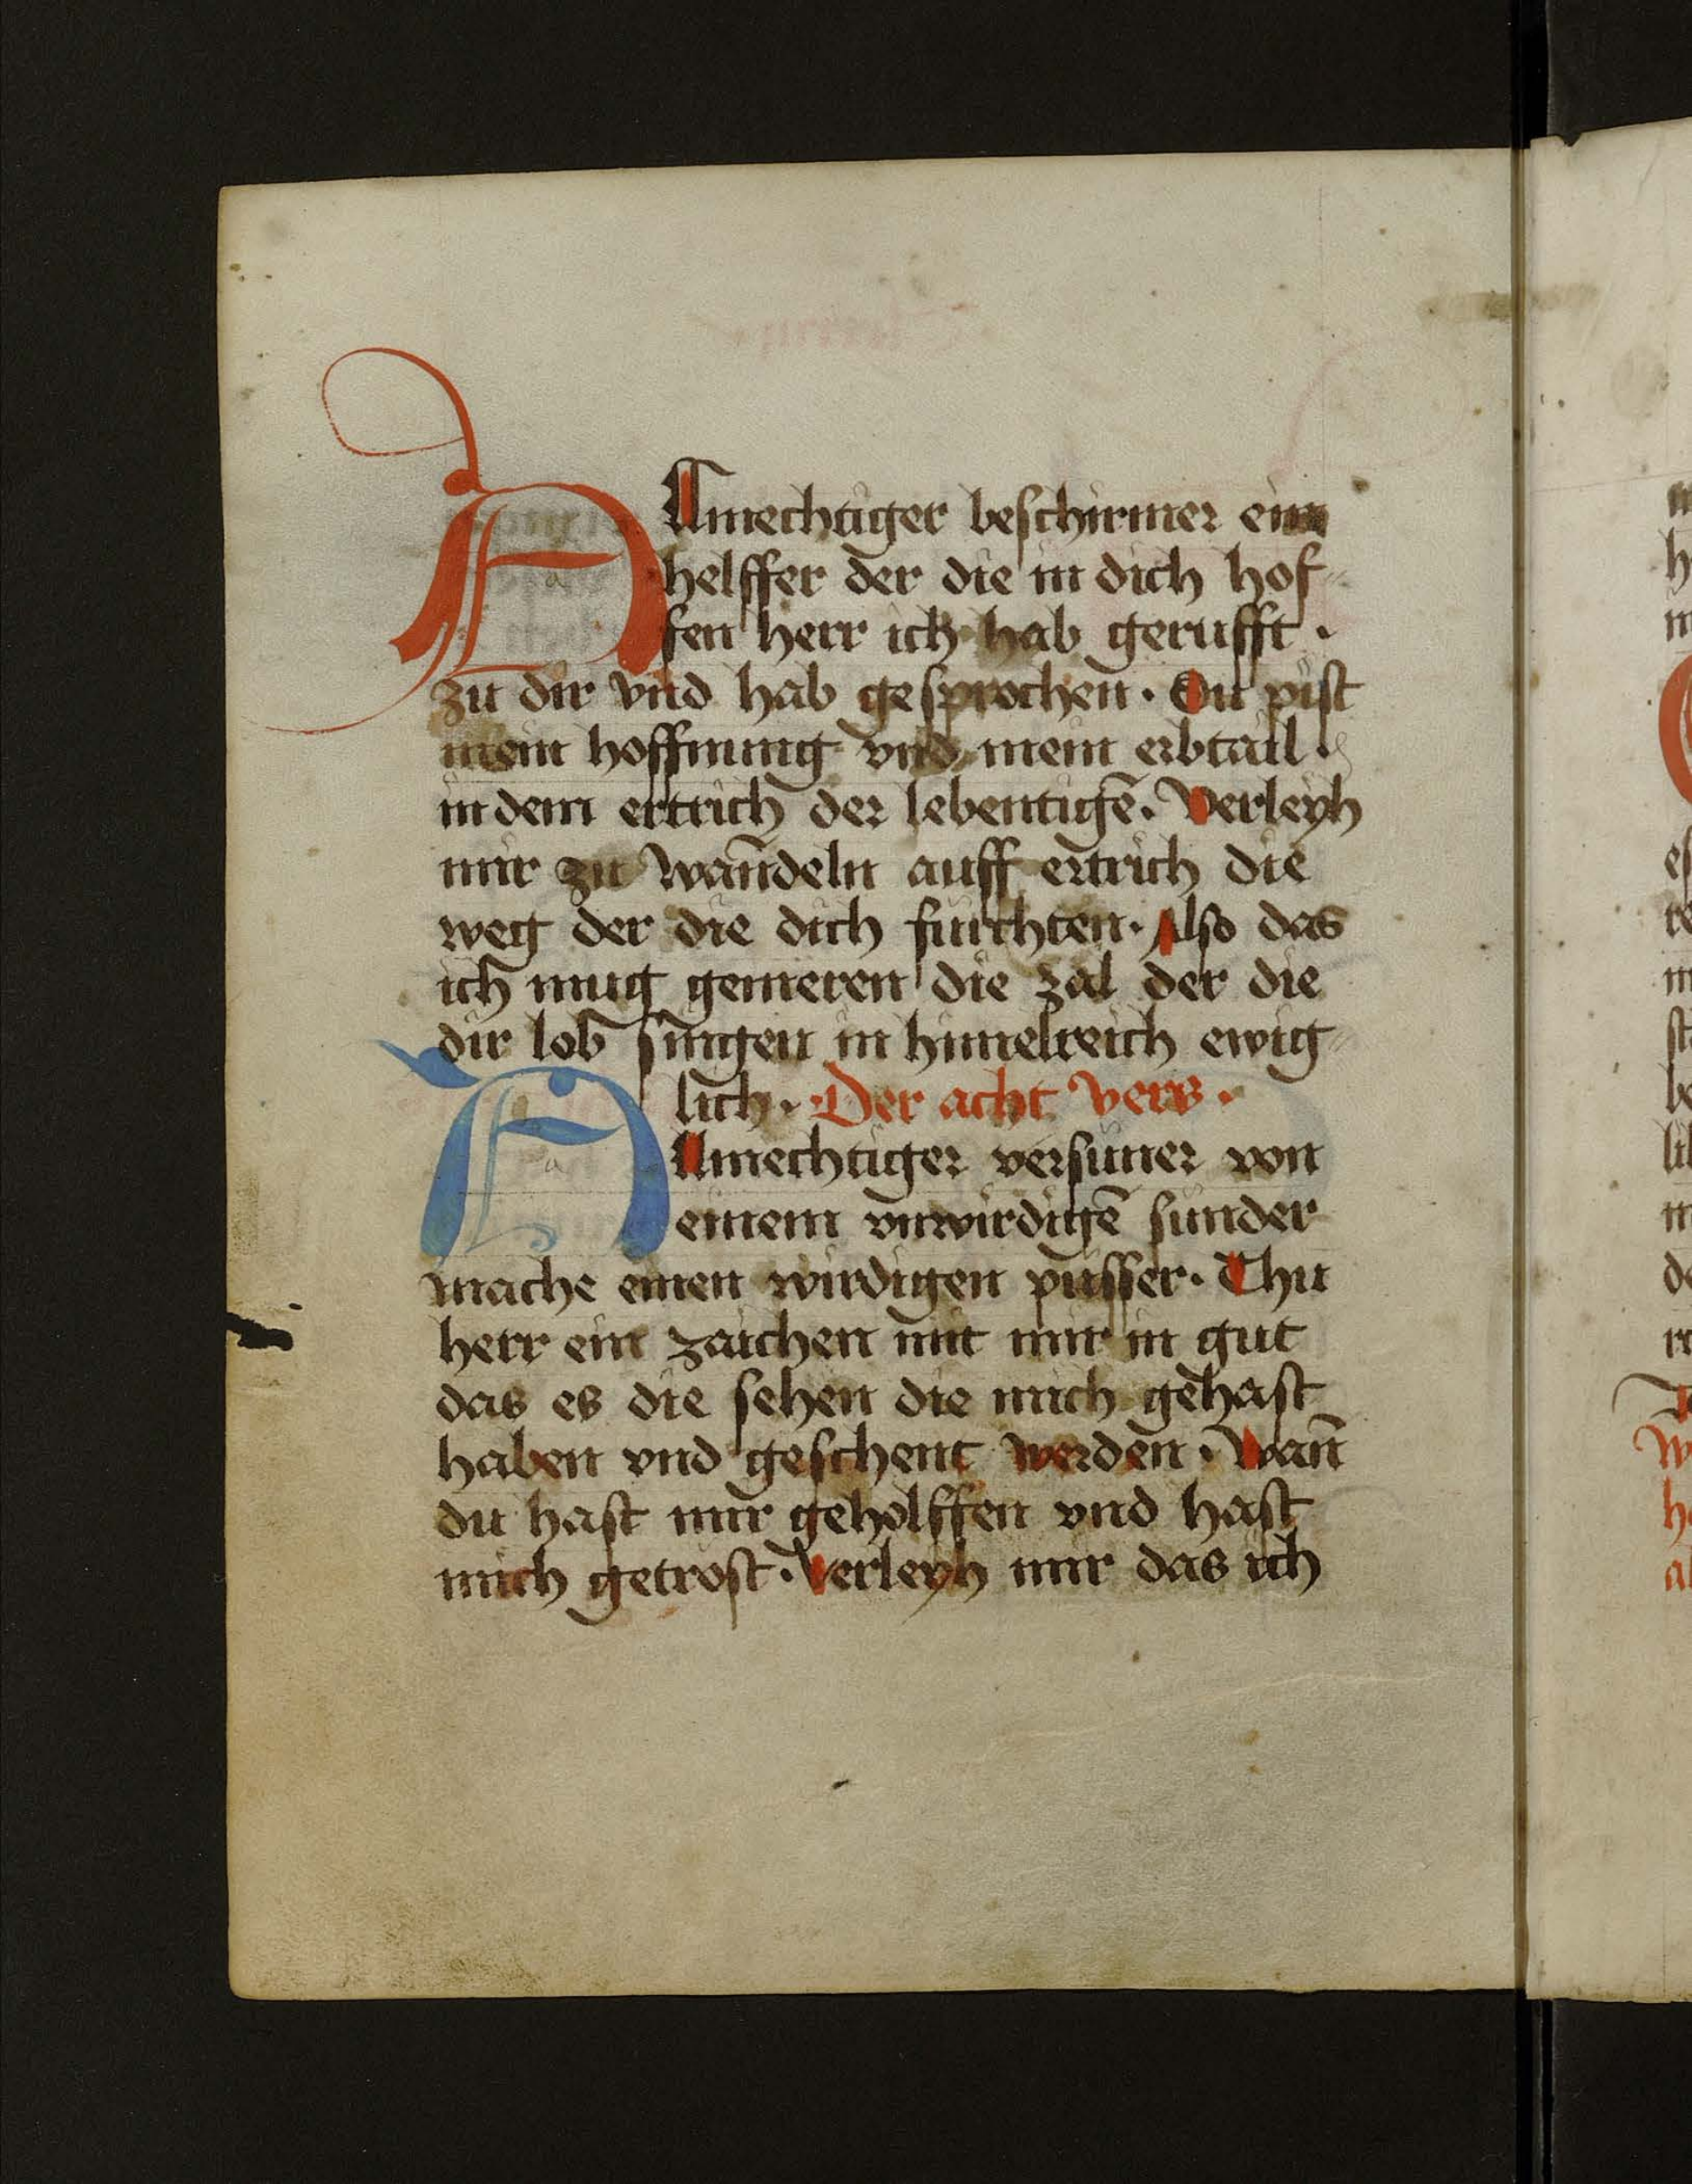 ALmechtiger beschirmer ein
helffer der die in dich hof⸗
fen herr ich hab gerufft ·
zu dir vnd hab gesprochen · Du pist
mein hoffnung vnd mein erbtail ·
in dem ertrich der lebentigē · Verleyh
mir zu wandeln auff ertrich die
weg der die dich furchten · Also das
ich mug gemeren die zal der die
dir lob singen in himelreich ewig⸗
lich · Der acht vers ·
ALmechtiger versuner von
einem vnwirdigē sunder
mache einen wirdigen pusser · Thu
herr ein zaichen mit mir in gut
das es die sehen die mich gehast
haben vnd geschent werden · Wan̄
du hast mir geholffen vnd hast
mich getrost · Verleyh mir das ich